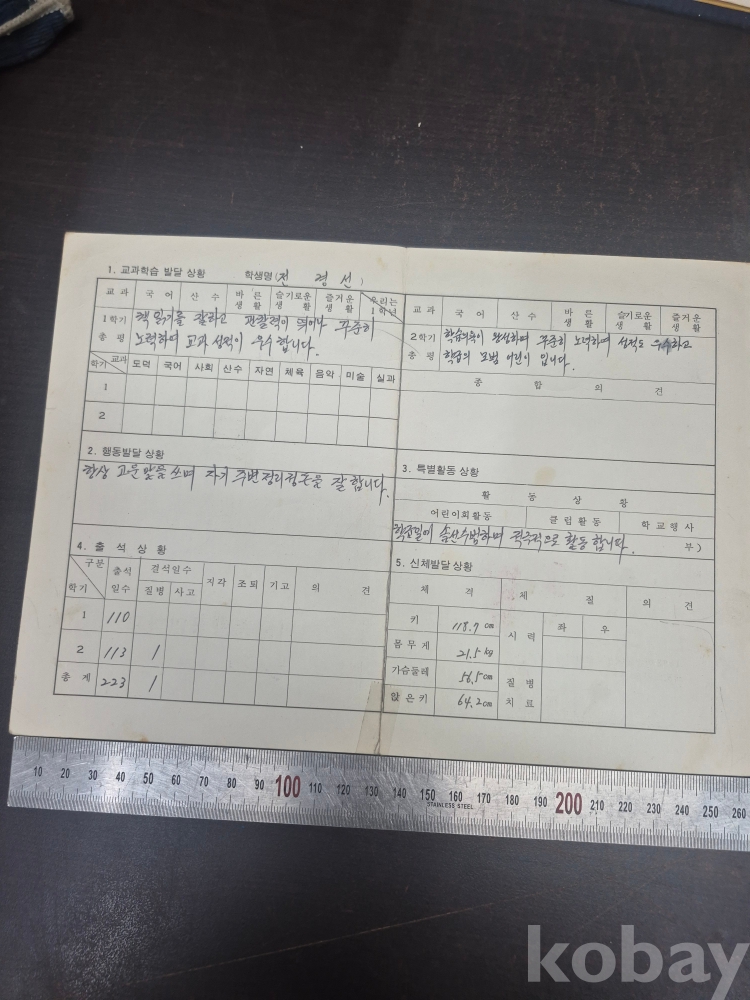 1. 교과학습 발달 상황 학생명(전 경선)
교과 국어 산수 바른생활 슬기로운생활 즐거운생활 우리는1학년
1학기 총평 책 읽기를 잘하고 관찰력이 뛰어나 꾸준히
노력하며 교과 성적이 우수합니다.
학기 교과 도덕 국어 사회 산수 자연 체육 음악 미술 실과
1
2
2. 행동발달 상황
항상 고운말을 쓰며 자기 주변정리정돈을 잘 합니다.
4. 출석상황
구분 출석일수 결석일수 지각 조퇴 기고 의견
학기 질병 사고
1 110
2 113 1
총계 223 1
교과 국어 산수 바른생활 슬기로운생활 즐거운생활
2학기 총평 학습의욕이 왕성하며 꾸준히 노력하여 성적도 우수하고
학급의 모범 어린이 입니다.
종합의견
3. 특별활동 상황
활동상황
어린이회활동 클럽활동 학교행사
솔선수범하며 적극적으로 활동합니다. 부)
5. 신체발달 상황
체격 체질 의견
키 118.7 cm 시력 좌 우
몸무게 21.5 kg
가슴둘레 56.5 cm 질병
앉은키 64.2 cm 치료
10 20 30 40 50 60 70 80 90 100 110 120 130 140 150 160 170 180 190 200 210 220 230 240 250 260
STAINLESS STEEL
kobay